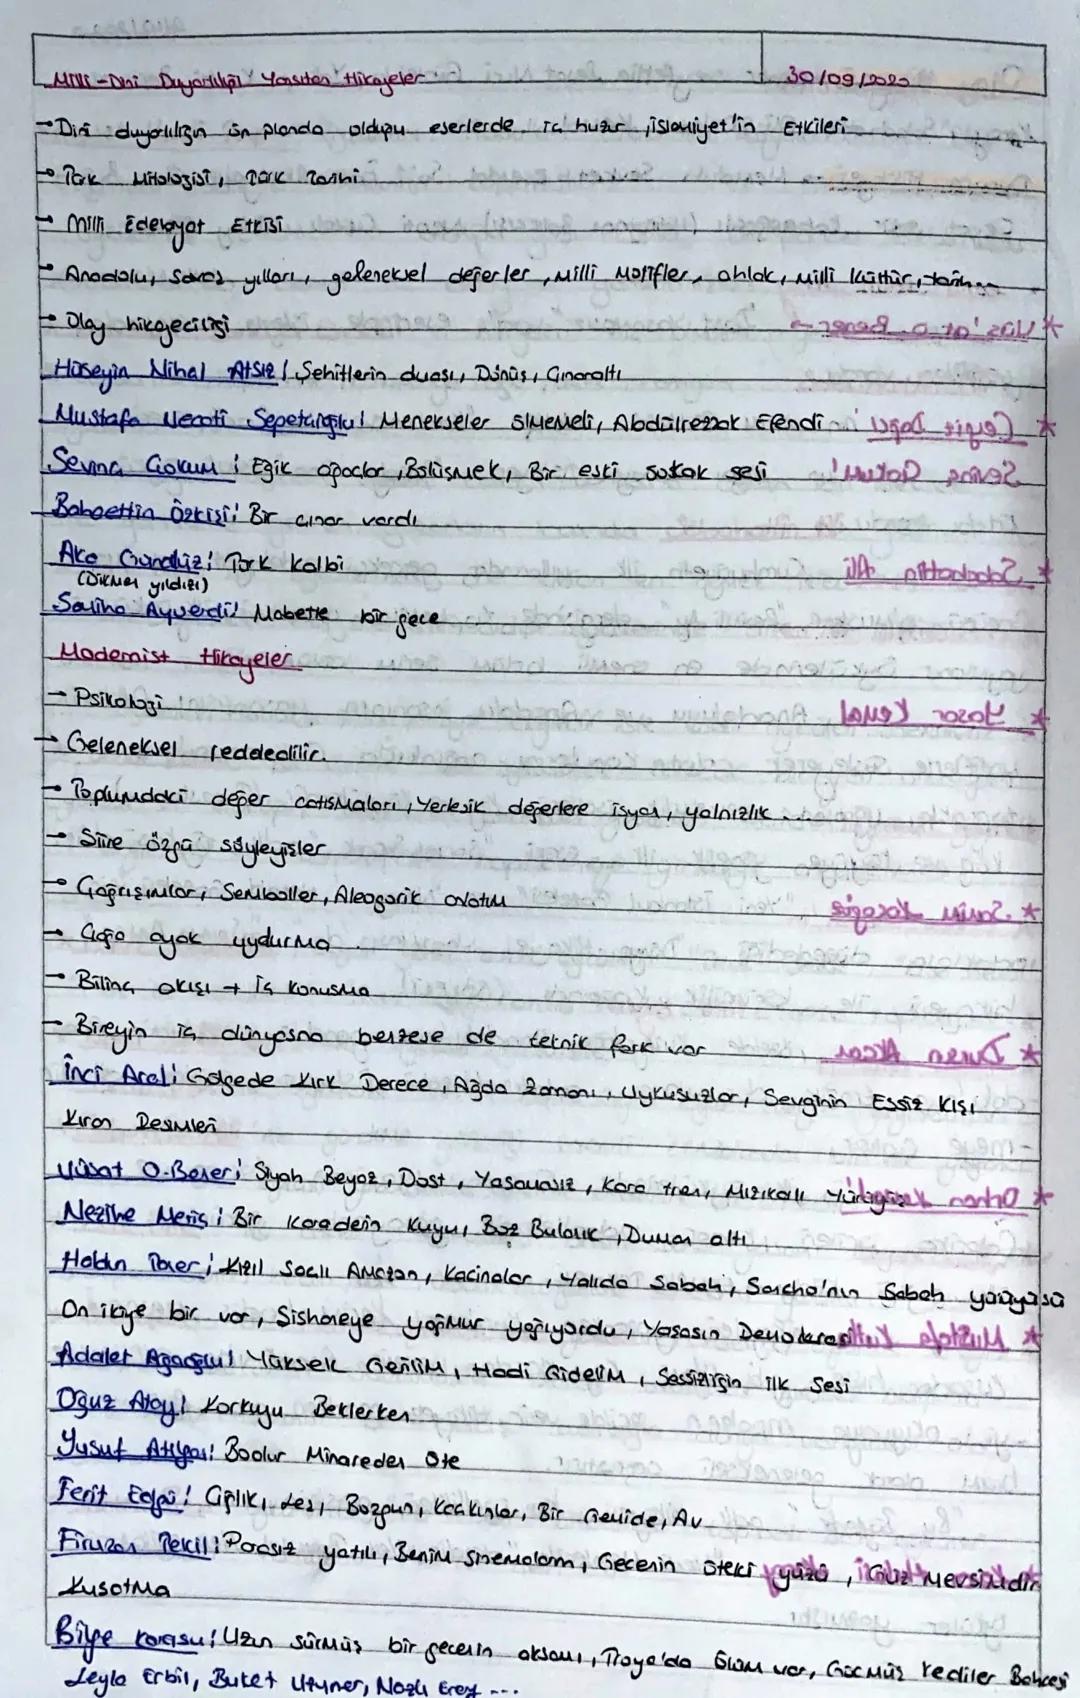 Milli-Dini Duyarlılığı Yansıtan Hikayeler 30/09/2020
→ Dini duyarlılığın ön planda olduğu eserlerde iç huzur, islamiyet'in Etkileri
→ Türk Mitolojisi, Türk Tarihi
→ Milli Edebiyat Etkisi
→ Anadolu, Savaş yılları, geleneksel değerler, Milli Motifler, ahlak, Milli kültür, tarih
→ Olay hikayeciliği
Hüseyin Nihal Atsız: Şehitlerin duası, Dönüş, Çınaraltı
Mustafa Necati Sepetçioğlu: Menekşeler ölmemeli, Abdülrezzak Efendi
Sevinç Çokum: Eğik ağaclar, Bölüşmek, Bir eski sokak sesi
Bahaettin Özkişi: Bir çınar vardı
Aka Gündüz: Türk Kalbi
(Dikmen yıldızı)
Samiha Ayverdi: Mabette bir gece
Modernist Hikayeler
→ Psikoloji
→ Geleneksel reddedilir.
→ Toplumdaki değer catısmaları, Yerlesik değerlere isyan, yalnızlık...
→ Şiire özgü söyleyişler
→ Çağrışımlar, Semboller, Aleogorik anlatım
→ Çağa ayak uydurma
→ Bilinç akışı → İç konusma
→ Bireyin iç dünyasına benzese de teknik fark var
İnci Aral: Gölgede Kırk Derece, Ağda Zamanı, Uykusuzlar, Sevginin Essiz Kışı
Kıran Resimleri
Vüsat O. Bener: Siyah Beyaz, Dost, Yaşamasız, Kara tren, Mızıkalı Yürüyüş
Nezihe Meriç: Bir Karadelin Kuyu, Boz Bulanık, Duman altı
Haldun Taner: Kızıl Saclı Amazan, Kacınalar, Yalıda Sabah, Sancho'nun Sabah yürüyüşü
On ikiye bir var, Sishaneye yağmur yağıyordu, Yasasın Demokrasi
Adalet Ağaoğlu: Yüksek Gerilim, Hadi Gidelim, Sessizliğin ilk Sesi
Oğuz Atay: Korkuyu Beklerken
Yusuf Atılgan: Bodur Minareden Öte
Ferit Edgü: Çığlık, Leş, Bozgun, Kaçkınlar, Bir Gemide, Av
Füruzan Tekcil: Parasız yatılı, Benim Sinemalarım, Gecenin öteki yüzü, Gül Mevsimidir
Kuşatma
Bilge karasu: Uzun sürmüş bir gecenin aksamı, Troya'da Ölüm var, Göçmüş Kediler Bahcesi
Leyla Erbil, Buket Uzuner, Nazlı Eray ...